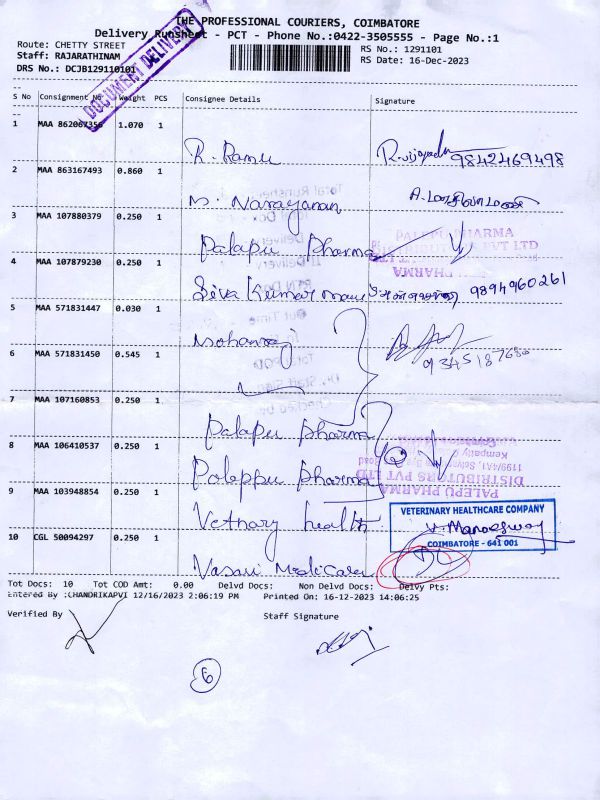 THE PROFESSIONAL COURIERS, COIMBATORE
Delivery Runsheet - PCT - Phone No.:0422-3505555 - Page No.:1
Route: CHETTY STREET RS No.: 1291101
Staff: RAJARATHINAM RS Date: 16-Dec-2023
DRS No.: DCJB129110101
DOCUMENT DELIVERY
S No Consignment No Weight PCS Consignee Details Signature
1 MAA 862067356 1.070 1
R. Ramu 9842469498
2 MAA 863167493 0.860 1
M. Narayanan
3 MAA 107880379 0.250 1
Palapu Pharma
PALEPU PHARMA
4 MAA 107879230 0.250 1
Siva Kumar 9894960261
5 MAA 571831447 0.030 1
Mohanraj
6 MAA 571831450 0.545 1
7 MAA 107160853 0.250 1
Palapu pharma
8 MAA 106410537 0.250 1
Poleppu pharma
DISTRIBUTORS PVT LTD
PALEPU PHARMA
9 MAA 103948854 0.250 1
Vetnary health
VETERINARY HEALTHCARE COMPANY
COIMBATORE - 641 001
10 CGL 50094297 0.250 1
Vasavi Medicare
Tot Docs: 10 Tot COD Amt: 0.00 Delvd Docs: Non Delvd Docs: Delvy Pts:
Entered By :CHANDRIKAPVI 12/16/2023 2:06:19 PM Printed On: 16-12-2023 14:06:25
Verified By Staff Signature
6